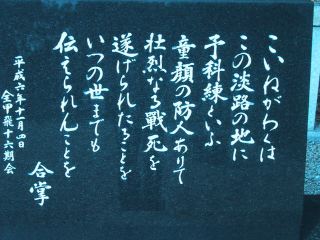 こいねがわくは
この淡路の地に
予科練という
童顔の防人ありて
壮烈なる戦死を
遂げられたることを
いつの世までも
伝えられんことを
合掌
平成六年十一月四日
全甲飛十六期会